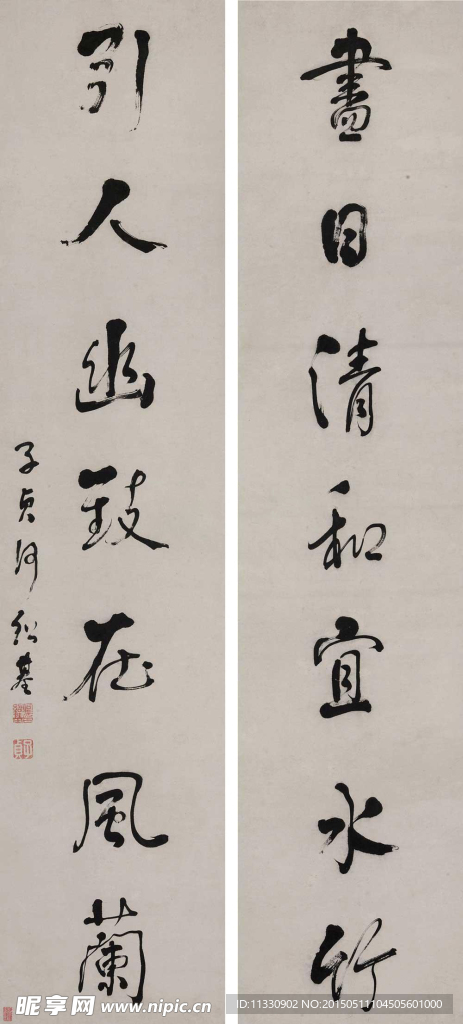 盡日清和宜水竹
引人幽致在風蘭
子貞何紹基
子貞
昵享网 www.nipic.cn
ID:11330902 NO:20150511104505601000